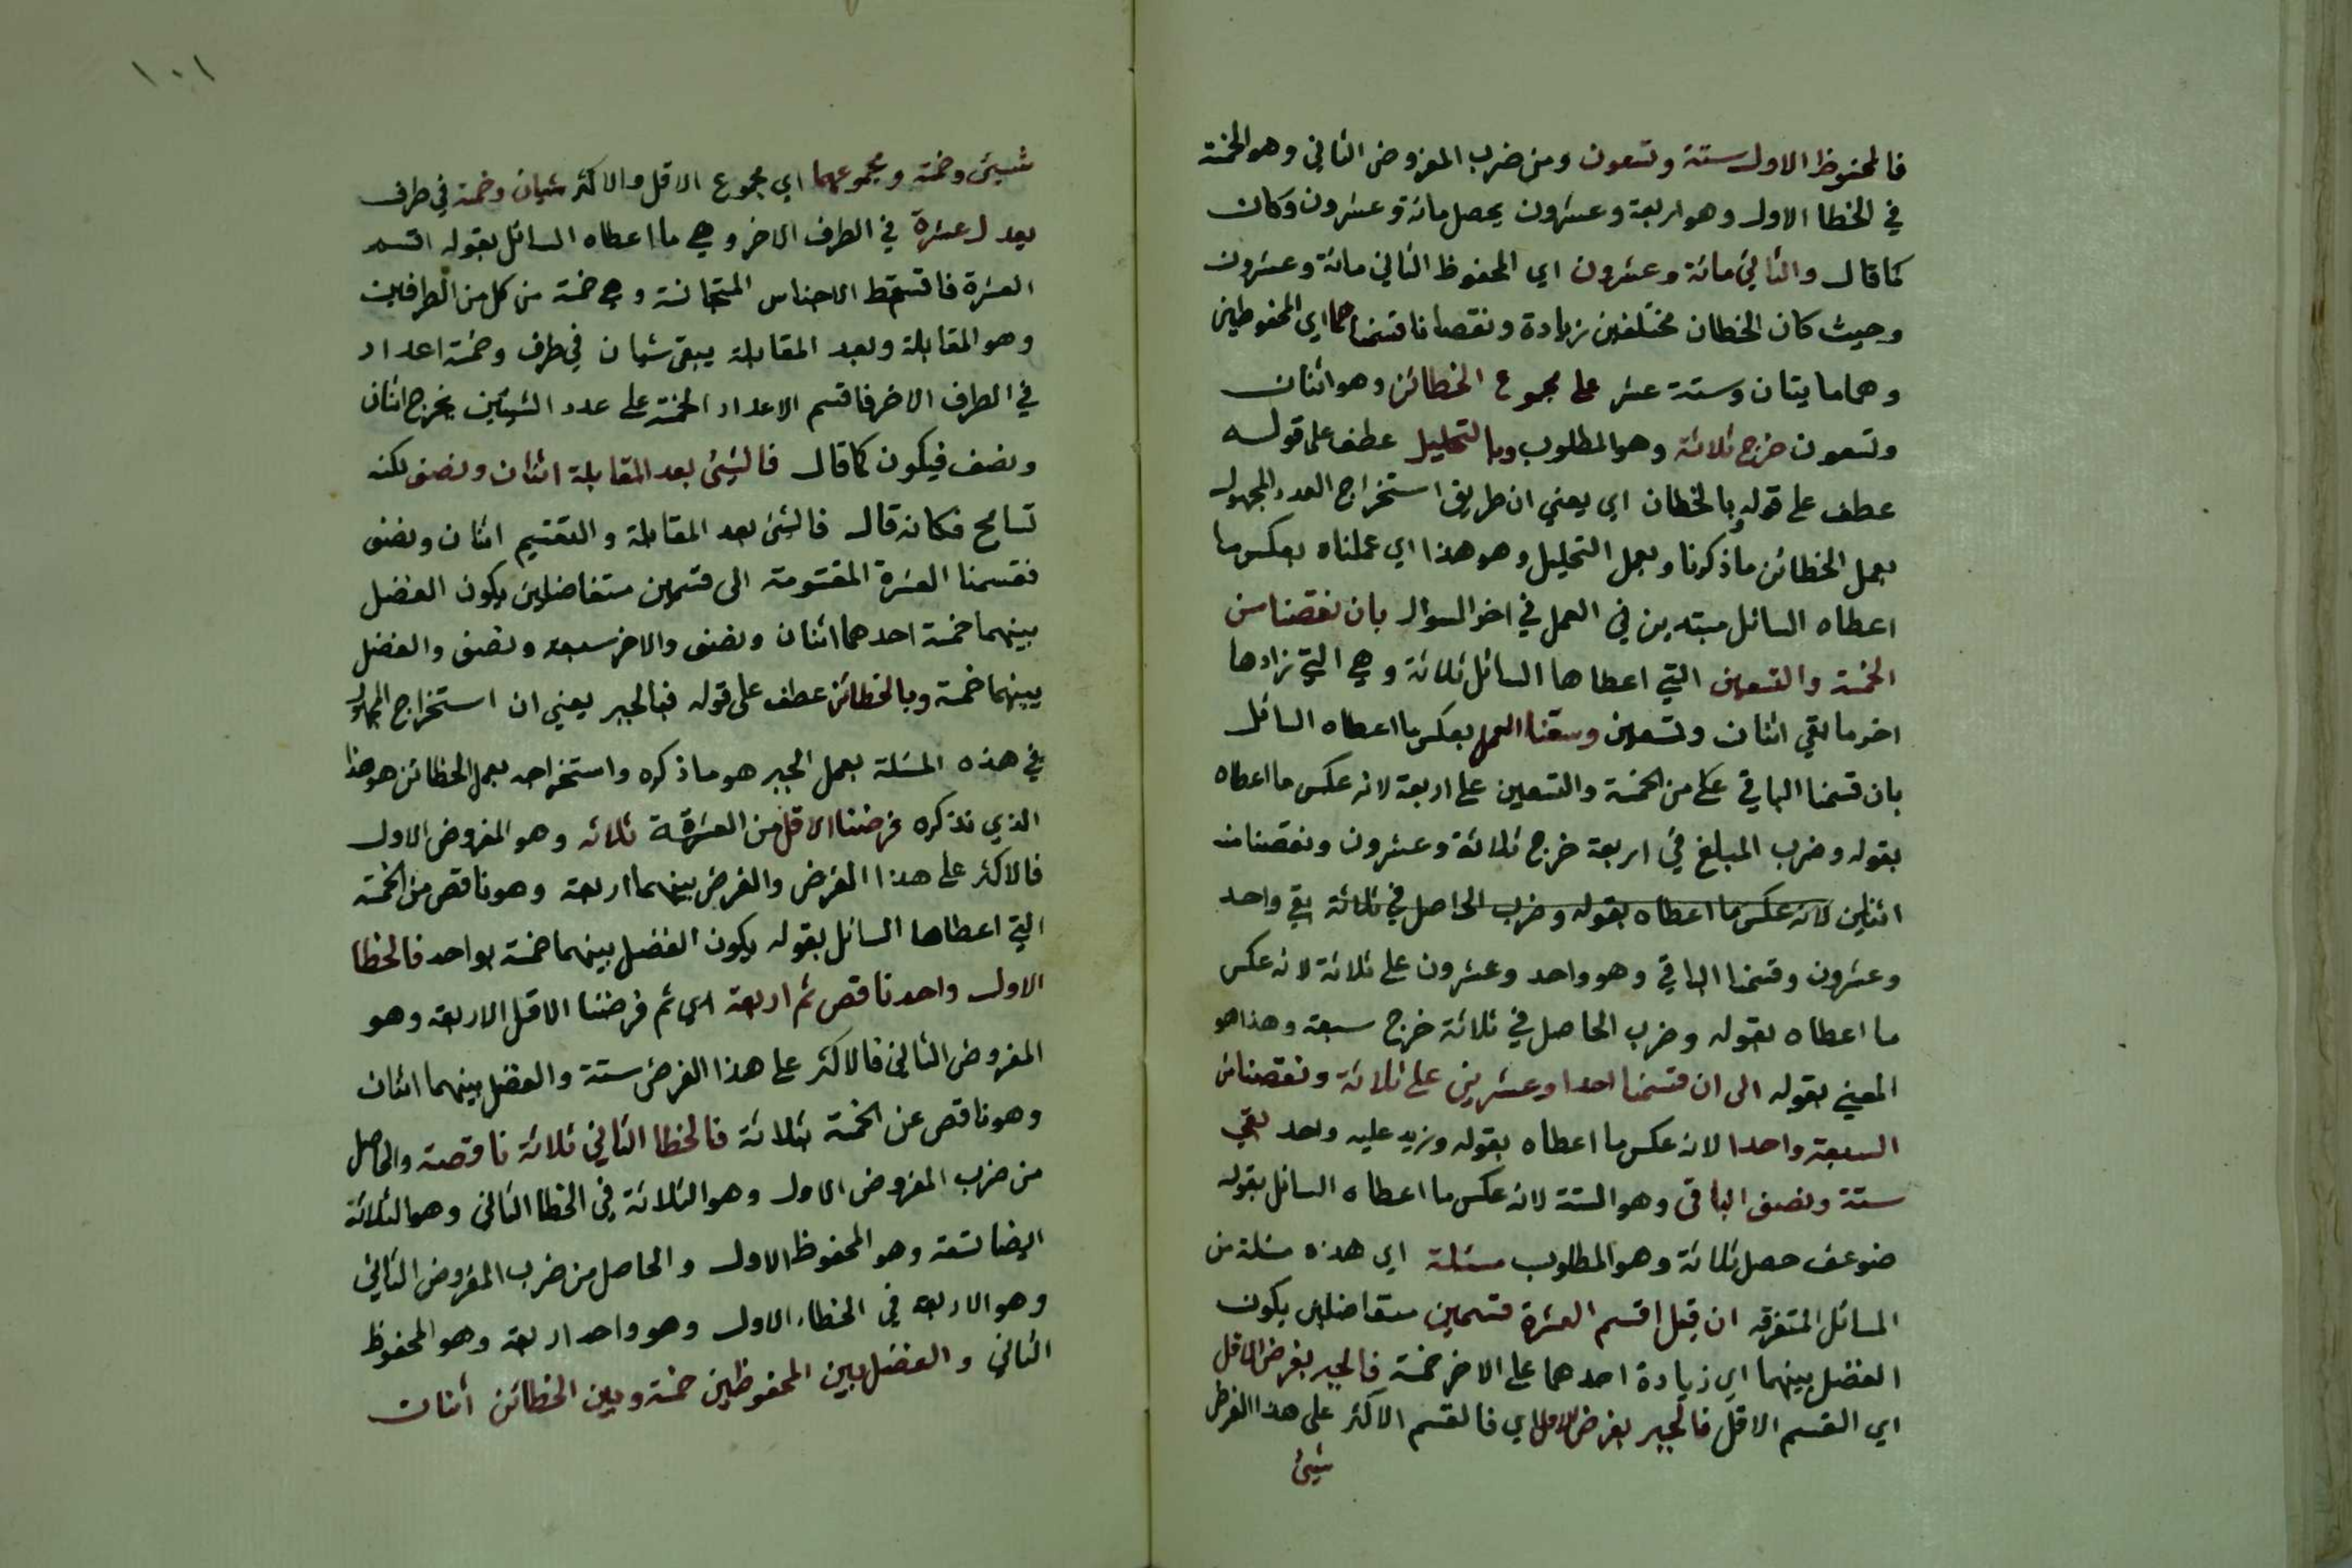 فالمحفوظ الاول ستة وتسعون ومن ضرب المفروض الثاني وهو الخمسة
في الخطا الاول وهو اربعة وعشرون يحصل مائة وعشرون وكان
كما قال والثاني مائة وعشرون اي المحفوظ الثاني مائة وعشرون
وحيث كان الخطان مختلفين زيادة ونقصا فاقسمناهما اي المحفوظين
وهما مايتان وستة عشر على مجموع الخطائن وهو اثنان
وتسعون خرج ثلاثة وهو المطلوب وبالتحليل عطف على قوله
عطف على قوله بالخطان اي يعني ان طريق استخراج العدد المجهول
بعمل الخطائن ما ذكرنا وبعمل التحليل وهو هذا اي عملناه بعكس ما
اعطاه السائل مبتدين في العمل في اخر السوال بان نقصنا من
الخمسة والتسعين التي اعطاها السائل ثلاثة وهي التي زادها
اخر ما بقي اثنان وتسعين وسقنا العمل بعكس ما اعطاه السائل
بان قسمنا الباقي من الخمسة والتسعين على اربعة لانه عكس ما اعطاه
بقوله وضرب المبلغ في اربعة خرج ثلاثة وعشرون ونقصنا منه
اثنين لانه عكس ما اعطاه بقوله وضرب الحاصل في ثلاثة بقي واحد
وعشرون وقسمنا الباقي وهو واحد وعشرون على ثلاثة لانه عكس
ما اعطاه بقوله وضرب الحاصل في ثلاثة خرج سبعة وهذا هو
المعني بقوله الى ان قسمنا احدا وعشرين على ثلاثة ونقصنا من
السبعة واحدا لانه عكس ما اعطاه بقوله وزيد عليه واحد بقي
ستة ونصف الباقي وهو الستة لانه عكس ما اعطاه السائل بقوله
ضوعف حصل ثلاثة وهو المطلوب مسئلة اي هذه مسئلة من
المسائل المتفرقه ان قيل اقسم العشرة قسمين متفاضلين يكون
الفضل بينهما اي زيادة احدهما على الاخر خمسة فالجبر بفرض الاقل
اي القسم الاقل فالجبر بفرض الاول اي فالقسم الاكثر على هذا الفرض
شيئ
١٠١
شيئ وخمسة ومجموعهما اي مجموع الاقل والاكثر شيان وخمسة في طرف
يعدل عشرة في الطرف الاخر وهي ما اعطاه السائل بقوله اقسم
العشرة فاسقط الاجناس المتجانسة وهي خمسة من كل من الطرفين
وهو المقابلة وبعد المقابلة يبقى شيان في طرف وخمسة اعداد
في الطرف الاخر فاقسم الاعداد الخمسة على عدد الشيئين يخرج اثنان
ونصف فيكون كما قال فالشيئ بعد المقابلة اثنان ونصف لكنه
تسامح فكانه قال فالشيئ بعد المقابلة والتقسيم اثنان ونصف
فقسمنا العشرة المقسومة الى قسمين متفاضلين يكون الفضل
بينهما خمسة احدهما اثنان ونصف والاخر سبعة ونصف والفضل
بينهما خمسة وبالخطائن عطف على قوله فبالجبر يعني ان استخراج المجهول
في هذه المسئلة بعمل الجبر هو ما ذكره واستخراجه بعمل الخطائن هو هذا
الذي نذكره فرضنا الاقل من العشرة ثلاثه وهو المفروض الاول
فالاكثر على هذا الفرض والفرض بينهما اربعة وهو ناقص من الخمسة
التي اعطاها السائل بقوله يكون الفضل بينهما خمسة بواحد فالخطا
الاول واحد ناقص ثم اربعة اي ثم فرضنا الاقل الاربعة وهو
المفروض الثاني فالاكثر على هذا الفرض ستة والفضل بينهما اثنان
وهو ناقص عن الخمسة بثلاثة فالخطا الثاني ثلاثة ناقصة والحاصل
من ضرب المفروض الاول وهو الثلاثة في الخطا الثاني وهو الثلاثة
ايضا تسعة وهو المحفوظ الاول والحاصل من ضرب المفروض الثاني
وهو الاربعة في الخطاء الاول وهو واحد اربعة وهو المحفوظ
الثاني والفضل بين المحفوظين خمسة وبين الخطائن اثنان